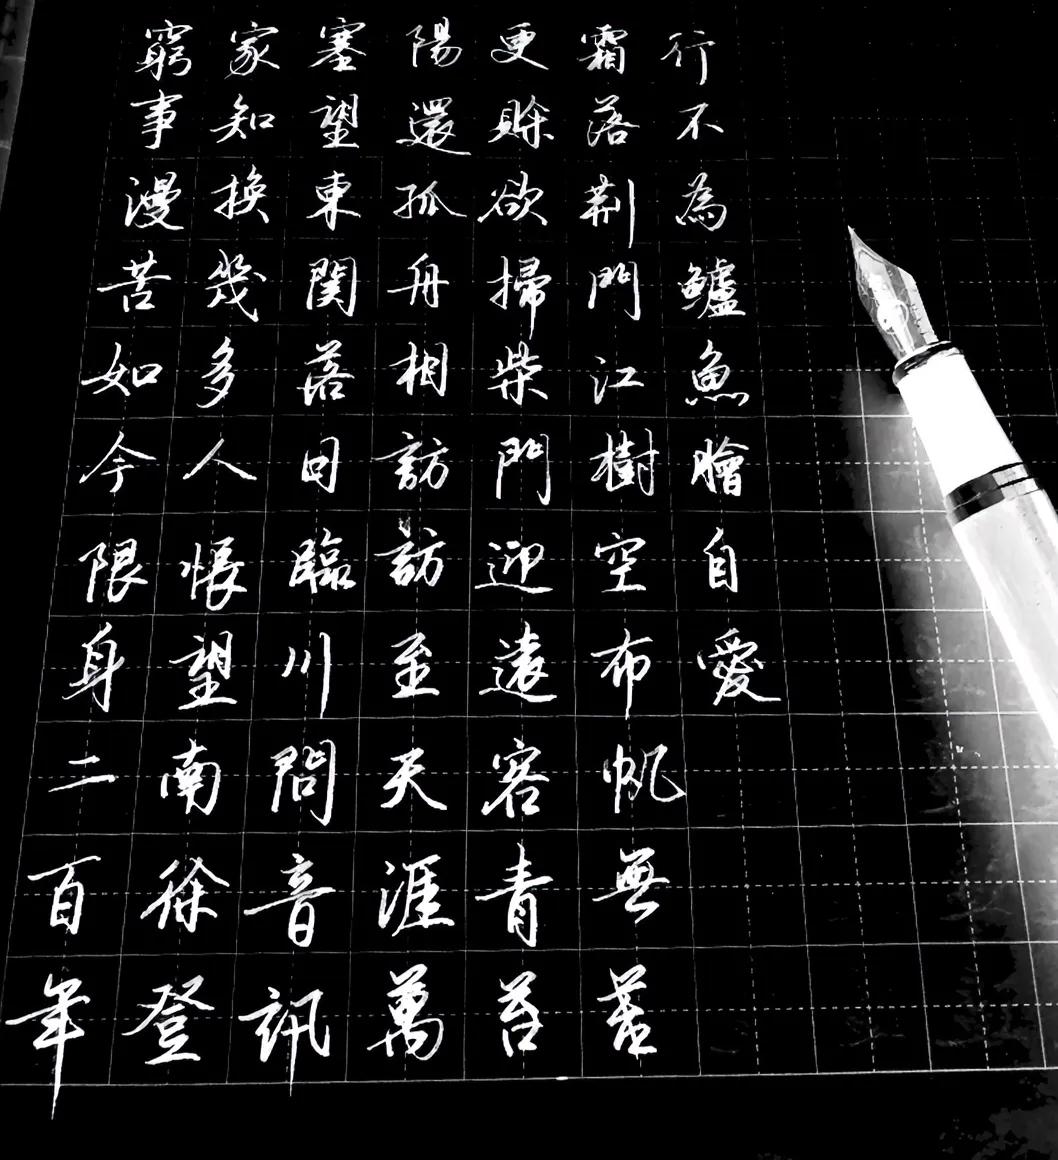 窮事漫苦如今限身二百年
家知換幾多人悵望南徐登
塞望東関落日臨川問音訊
陽還孤舟相訪訪至天涯萬
更賒欲掃柴門迎遠客青苔
霜落荊門江樹空布帆無恙
行不為鱸魚膾自愛